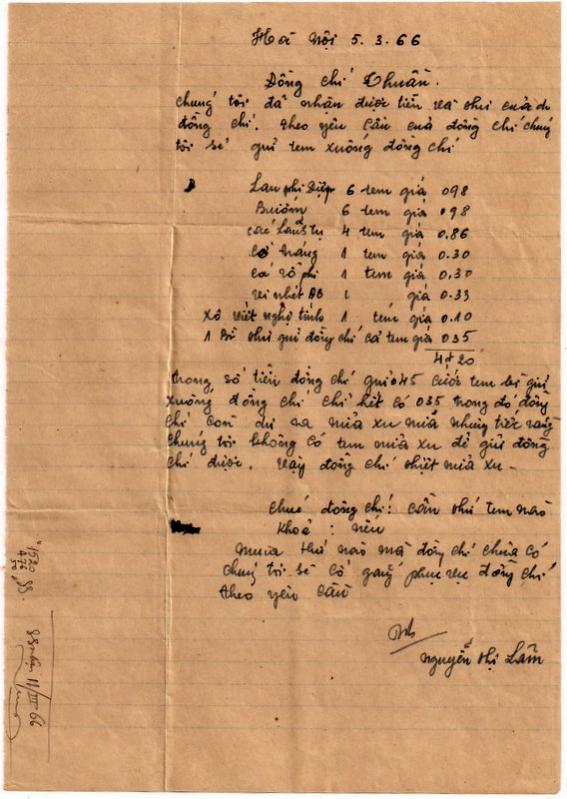 Hà Nội 5.3.66
Đồng chí Thuần.
chúng tôi đã nhận được tiền và thư của
đồng chí. theo yêu cầu của đồng chí chúng
tôi sẽ gửi tem xuống đồng chí
Lan phi Điệp 6 tem giá 098
Bướm 6 tem giá 098
4 tem giá 0.86
1 tem giá 0.30
cá rô phi 1 tem giá 0.30
1 giá 0.33
Xô viết nghệ tĩnh 1 tem giá 0.10
1 Bì thư gửi đồng chí cả tem giá 035
4đ20
trong số tiền đồng chí gửi 045 cước tem bì gửi
xuống đồng chí chỉ hết có 035 trong đó đồng
chí còn dư ra nửa xu mà nhưng tiếc rằng
chúng tôi không có tem nửa xu để gửi đồng
chí được. vậy đồng chí thiệt nửa xu -
chúc đồng chí: cần thứ tem nào
khoẻ: nếu
mua thứ nào mà đồng chí chưa có
chúng tôi sẽ cố gắng phục vụ đồng chí
theo yêu cầu
nguyễn thị Lâm
11/III 66